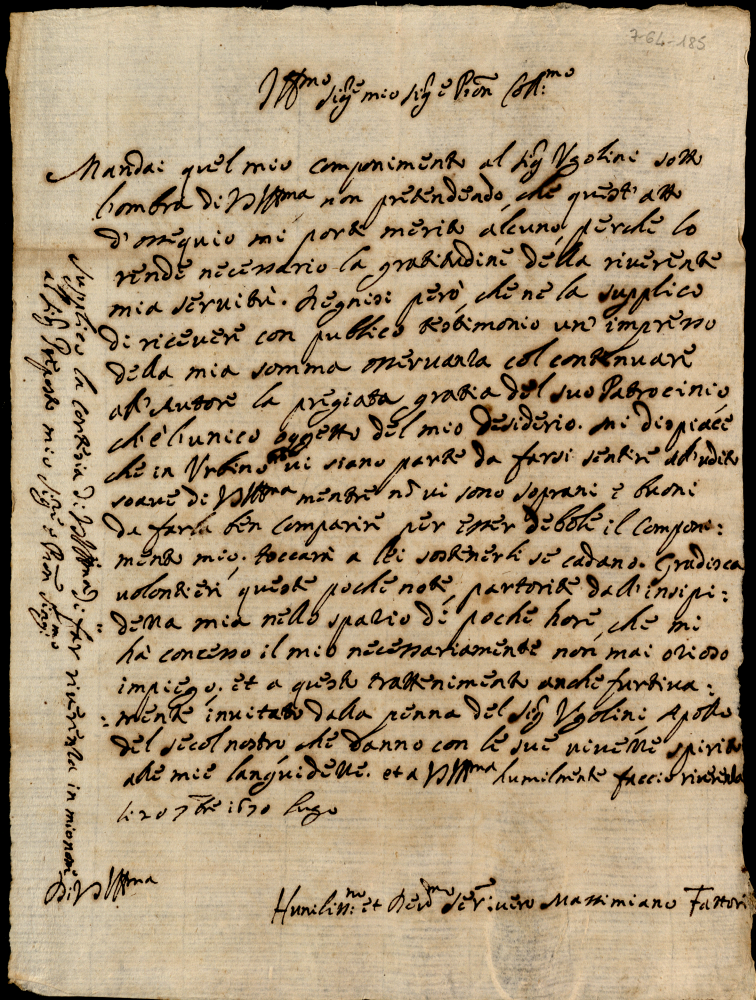 7-64-185
Ill.mo Sig.e mio Sig.e e Pron Coll.mo
Mandai quel mio componimento al Sig. Vgolini sotto
l'ombra di V.S. Ill.ma non pretendendo, che quest'atto
d'ossequio mi porte merito alcuno, perche lo
rende necessario la gratitudine della riverente
mia servitù. Negnisi però, che ne la supplico
di ricevere con publico testimonio un'impresso
della mia somma osservanza col continuare
all'Autore la pregiata gratia del suo Patrocinio
ch'è l'unico oggetto del mio desiderio. Mi dispiace
che in Vrbino vi siano parte da farsi sentire all'udito
soave di V.S. Ill.ma mentre nõ vi sono soprani è buoni
da farla ben comparire per esser debole il componi:
mento mio. toccarà a lei sostenerli se cadano. Gradisca
volontieri queste poche note, partorite dall'insipi:
dezza mia nello spazio di poche hore, che mi
hà concesso il mio necessariamente non mai otioso
impiego. et a queste trattenimento anche furtiva:
:mente invitato dalla penna del Sig. Vgolini Apollo
del secol nostro che danno con le sue vivezze spirito
alle mie languidezze. et a V.S. Ill.ma humilmente faccio riverenza
li 20 7bre 1670 Lugo
Di V.S. Ill.ma
Humiliss.mo et Dev.mo Ser.e vero Massimiano Fattori
Supplico la cortesia di V.S. Ill.ma di far riverenza in mio nome
al Sig. Preposto mio Sig.e e Pron